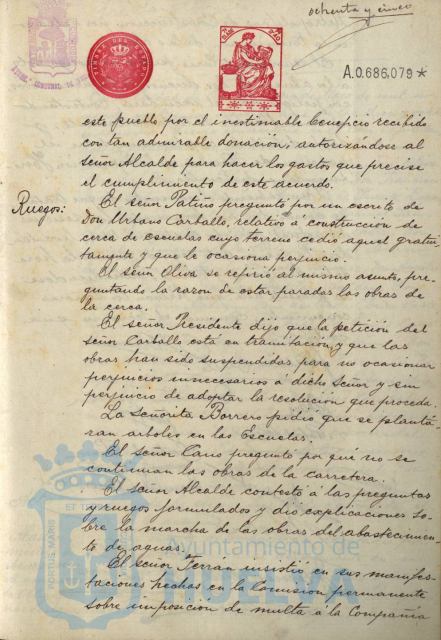 ochenta y cinco
TIMBRE DEL ESTADO
A.0.686,079*
este pueblo por el inestimable beneficio recibido
con tan admirable donación; autorizándose al
Señor Alcalde para hacer los gastos que precise
el cumplimiento de este acuerdo.
Ruegos:
El señor Patiño preguntó por un escrito de
Don Urbano Carballo, relativo á construcción de
cerca de escuelas cuyo terreno cedió aquel gratui-
tamente y que le ocasiona perjuicio.
El Señor Oliva se refirió al mismo asunto, pre-
guntando la razon de estar paradas las obras de
la cerca.
El señor Presidente dijo que la petición del
señor Carballo está en tramitación y que las
obras han sido suspendidas para no ocasionar
perjuicios innecesarios á dicho Señor y sin
perjuicio de adoptar la resolución que proceda.
La Señorita Borrero pidió que se planta-
ran arboles en las Escuelas.
El señor Cano preguntó por qué no se
continuan las obras de la carretera.
El señor Alcalde contestó á las preguntas
y ruegos formulados y dió explicaciones so-
bre la marcha de las obras del abastecimien-
to de aguas.
El señor Terran insistió en sus manifes-
taciones hechas en la Comision permanente
sobre imposicion de multa á la Compañia
PORTUS MARIS
Ayuntamiento de
HUELVA